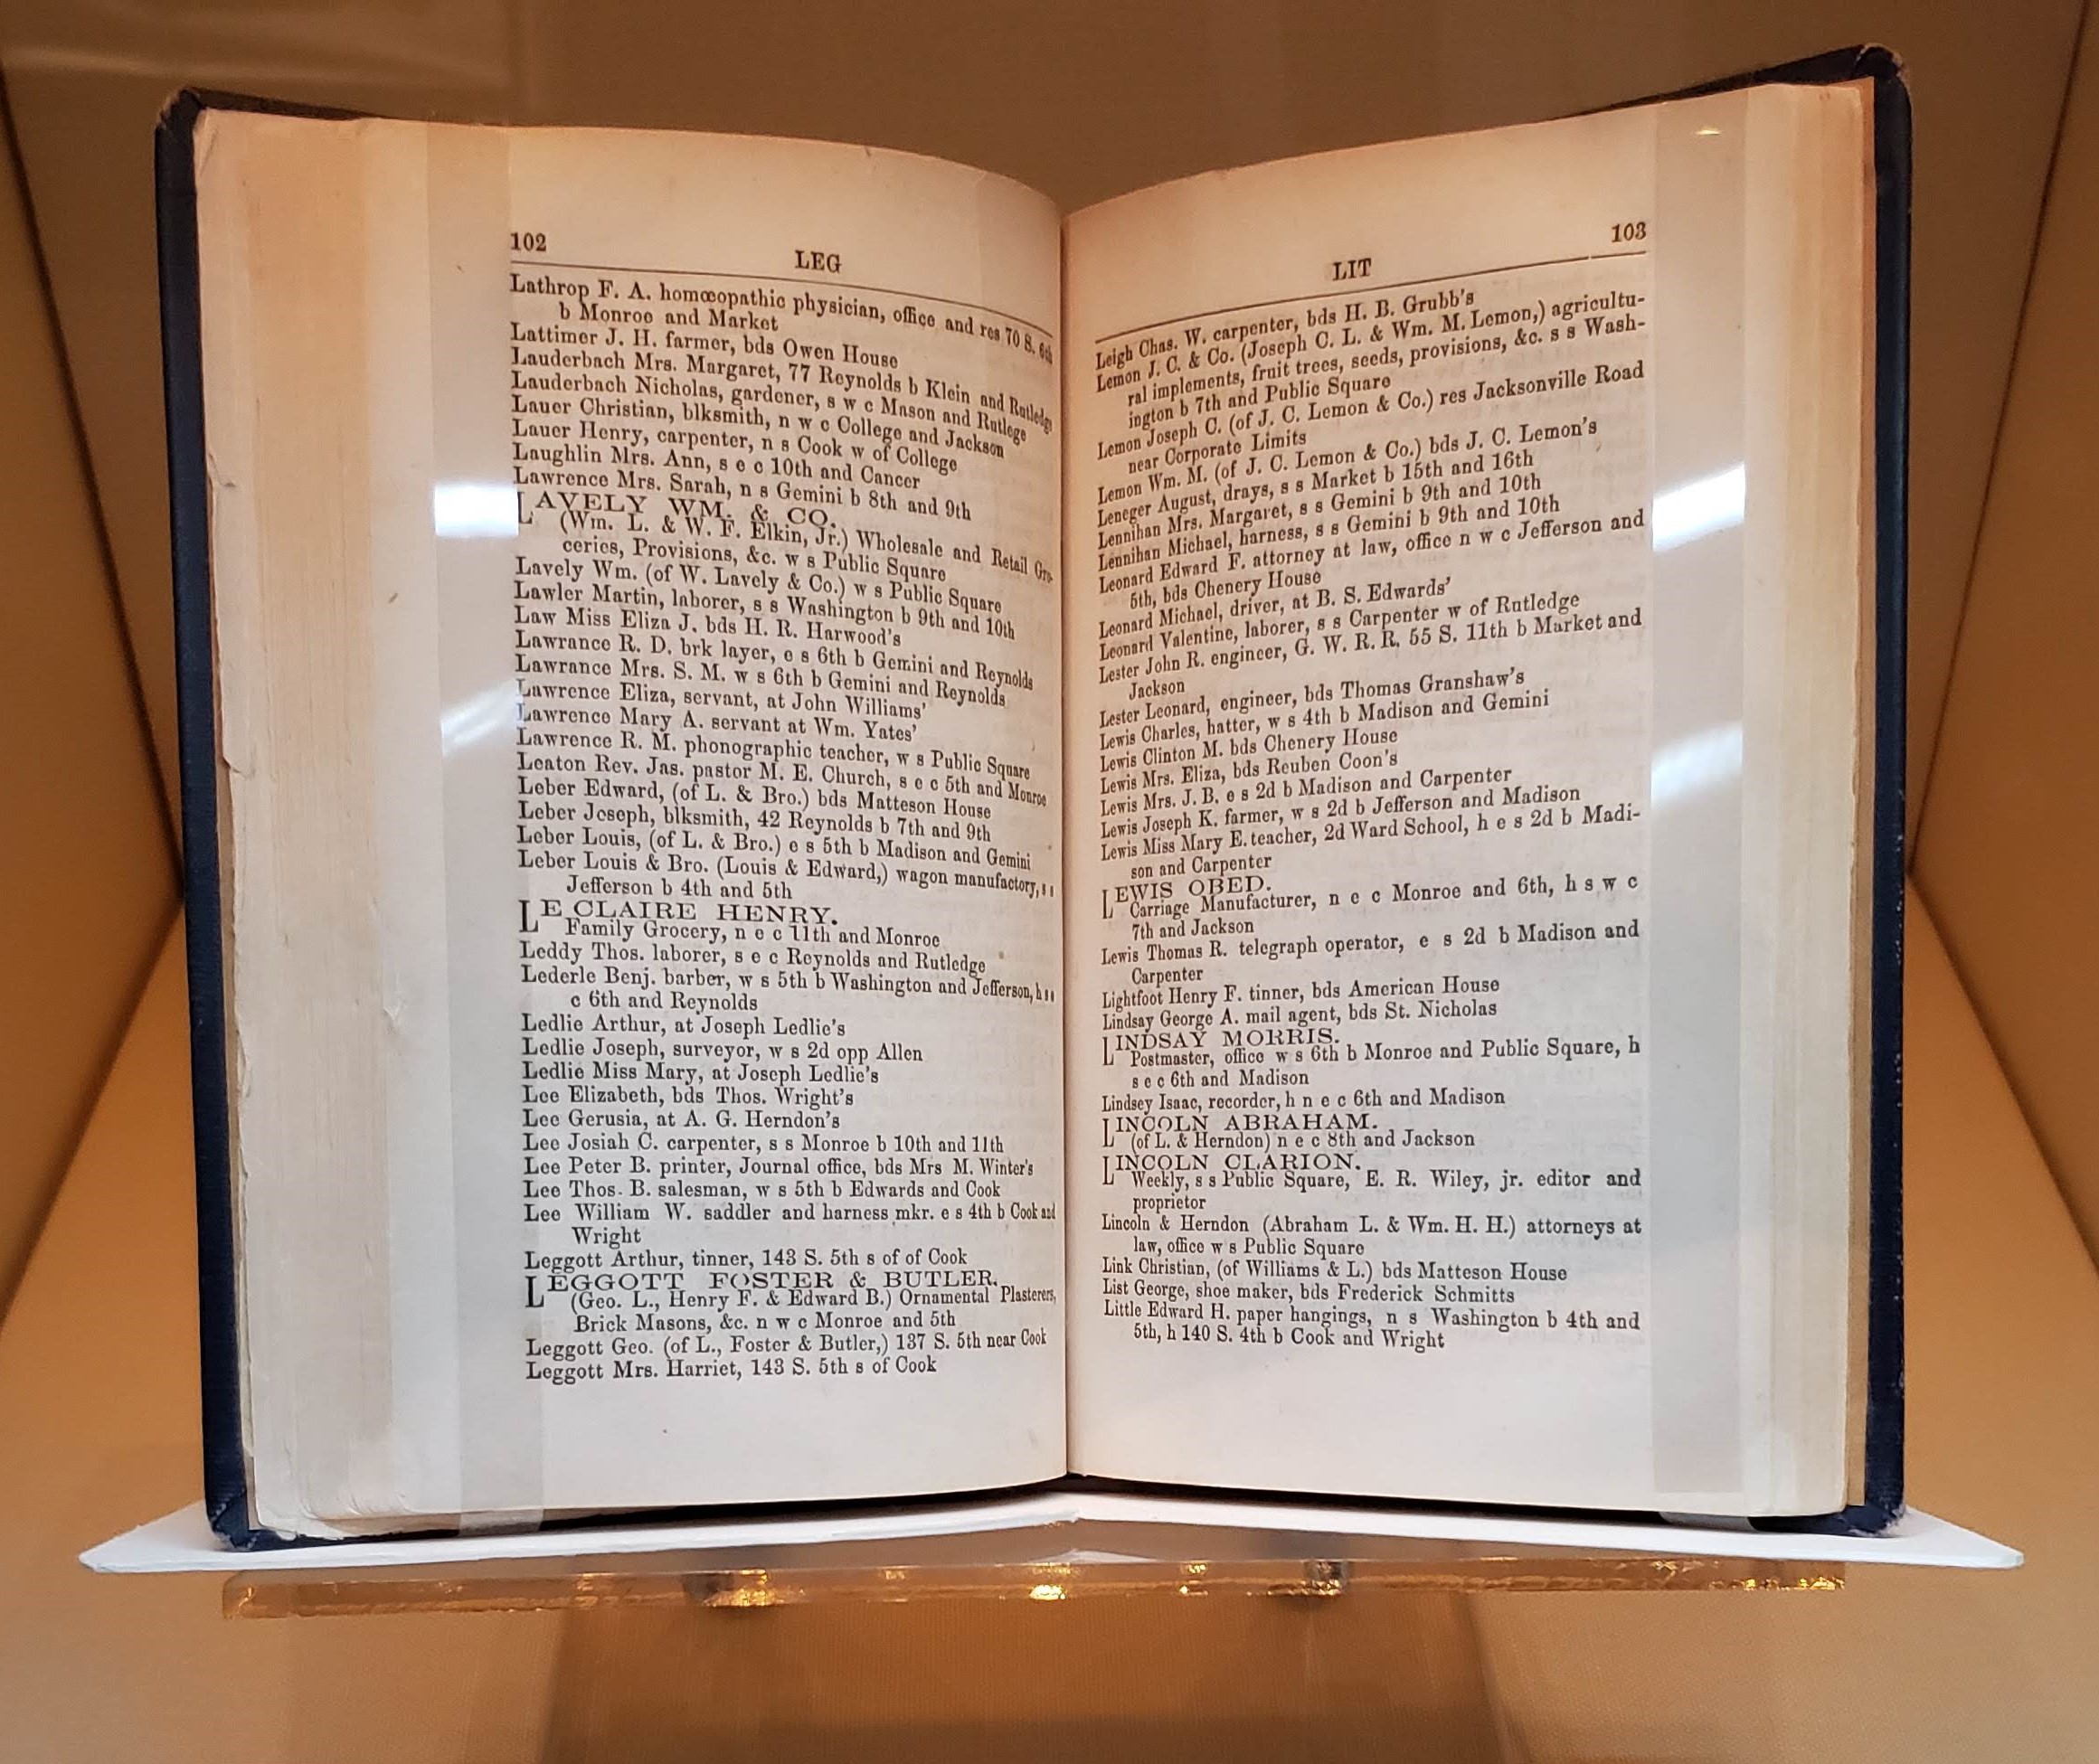 102
LEG
Lathrop F. A. homœopathic physician, office and res 70 S. 6th
b Monroe and Market
Lattimer J. H. farmer, bds Owen House
Lauderbach Mrs. Margaret, 77 Reynolds b Klein and Rutledge
Lauderbach Nicholas, gardener, s w c Mason and Rutlege
Lauer Christian, blksmith, n w c College and Jackson
Lauer Henry, carpenter, n s Cook w of College
Laughlin Mrs. Ann, s e c 10th and Cancer
Lawrence Mrs. Sarah, n s Gemini b 8th and 9th
LAVELY WM. & CO.
(Wm. L. & W. F. Elkin, Jr.) Wholesale and Retail Gro-
ceries, Provisions, &c. w s Public Square
Lavely Wm. (of W. Lavely & Co.) w s Public Square
Lawler Martin, laborer, s s Washington b 9th and 10th
Law Miss Eliza J. bds H. R. Harwood's
Lawrance R. D. brk layer, e s 6th b Gemini and Reynolds
Lawrance Mrs. S. M. w s 6th b Gemini and Reynolds
Lawrence Eliza, servant, at John Williams'
Lawrence Mary A. servant at Wm. Yates'
Lawrence R. M. phonographic teacher, w s Public Square
Leaton Rev. Jas. pastor M. E. Church, s e c 5th and Monroe
Leber Edward, (of L. & Bro.) bds Matteson House
Leber Joseph, blksmith, 42 Reynolds b 7th and 9th
Leber Louis, (of L. & Bro.) e s 5th b Madison and Gemini
Leber Louis & Bro. (Louis & Edward,) wagon manufactory, s s
Jefferson b 4th and 5th
LE CLAIRE HENRY.
Family Grocery, n e c 11th and Monroe
Leddy Thos. laborer, s e c Reynolds and Rutledge
Lederle Benj. barber, w s 5th b Washington and Jefferson, h s e
c 6th and Reynolds
Ledlie Arthur, at Joseph Ledlie's
Ledlie Joseph, surveyor, w s 2d opp Allen
Ledlie Miss Mary, at Joseph Ledlie's
Lee Elizabeth, bds Thos. Wright's
Lee Gerusia, at A. G. Herndon's
Lee Josiah C. carpenter, s s Monroe b 10th and 11th
Lee Peter B. printer, Journal office, bds Mrs M. Winter's
Lee Thos. B. salesman, w s 5th b Edwards and Cook
Lee William W. saddler and harness mkr. e s 4th b Cook and
Wright
Leggott Arthur, tinner, 143 S. 5th s of of Cook
LEGGOTT FOSTER & BUTLER.
(Geo. L., Henry F. & Edward B.) Ornamental Plasterers,
Brick Masons, &c. n w c Monroe and 5th
Leggott Geo. (of L., Foster & Butler,) 137 S. 5th near Cook
Leggott Mrs. Harriet, 143 S. 5th s of Cook
103
LIT
Leigh Chas. W. carpenter, bds H. B. Grubb's
Lemon J. C. & Co. (Joseph C. L. & Wm. M. Lemon,) agricultu-
ral implements, fruit trees, seeds, provisions, &c. s s Wash-
ington b 7th and Public Square
Lemon Joseph C. (of J. C. Lemon & Co.) res Jacksonville Road
near Corporate Limits
Lemon Wm. M. (of J. C. Lemon & Co.) bds J. C. Lemon's
Leneger August, drays, s s Market b 15th and 16th
Lennihan Mrs. Margaret, s s Gemini b 9th and 10th
Lennihan Michael, harness, s s Gemini b 9th and 10th
Leonard Edward F. attorney at law, office n w c Jefferson and
5th, bds Chenery House
Leonard Michael, driver, at B. S. Edwards'
Leonard Valentine, laborer, s s Carpenter w of Rutledge
Lester John R. engineer, G. W. R. R. 55 S. 11th b Market and
Jackson
Lester Leonard, engineer, bds Thomas Granshaw's
Lewis Charles, hatter, w s 4th b Madison and Gemini
Lewis Clinton M. bds Chenery House
Lewis Mrs. Eliza, bds Reuben Coon's
Lewis Mrs. J. B. e s 2d b Madison and Carpenter
Lewis Joseph K. farmer, w s 2d b Jefferson and Madison
Lewis Miss Mary E. teacher, 2d Ward School, h e s 2d b Madi-
son and Carpenter
LEWIS OBED.
Carriage Manufacturer, n e c Monroe and 6th, h s w c
7th and Jackson
Lewis Thomas R. telegraph operator, e s 2d b Madison and
Carpenter
Lightfoot Henry F. tinner, bds American House
Lindsay George A. mail agent, bds St. Nicholas
LINDSAY MORRIS.
Postmaster, office w s 6th b Monroe and Public Square, h
s e c 6th and Madison
Lindsey Isaac, recorder, h n e c 6th and Madison
LINCOLN ABRAHAM.
(of L. & Herndon) n e c 8th and Jackson
LINCOLN CLARION.
Weekly, s s Public Square, E. R. Wiley, jr. editor and
proprietor
Lincoln & Herndon (Abraham L. & Wm. H. H.) attorneys at
law, office w s Public Square
Link Christian, (of Williams & L.) bds Matteson House
List George, shoe maker, bds Frederick Schmitts
Little Edward H. paper hangings, n s Washington b 4th and
5th, h 140 S. 4th b Cook and Wright